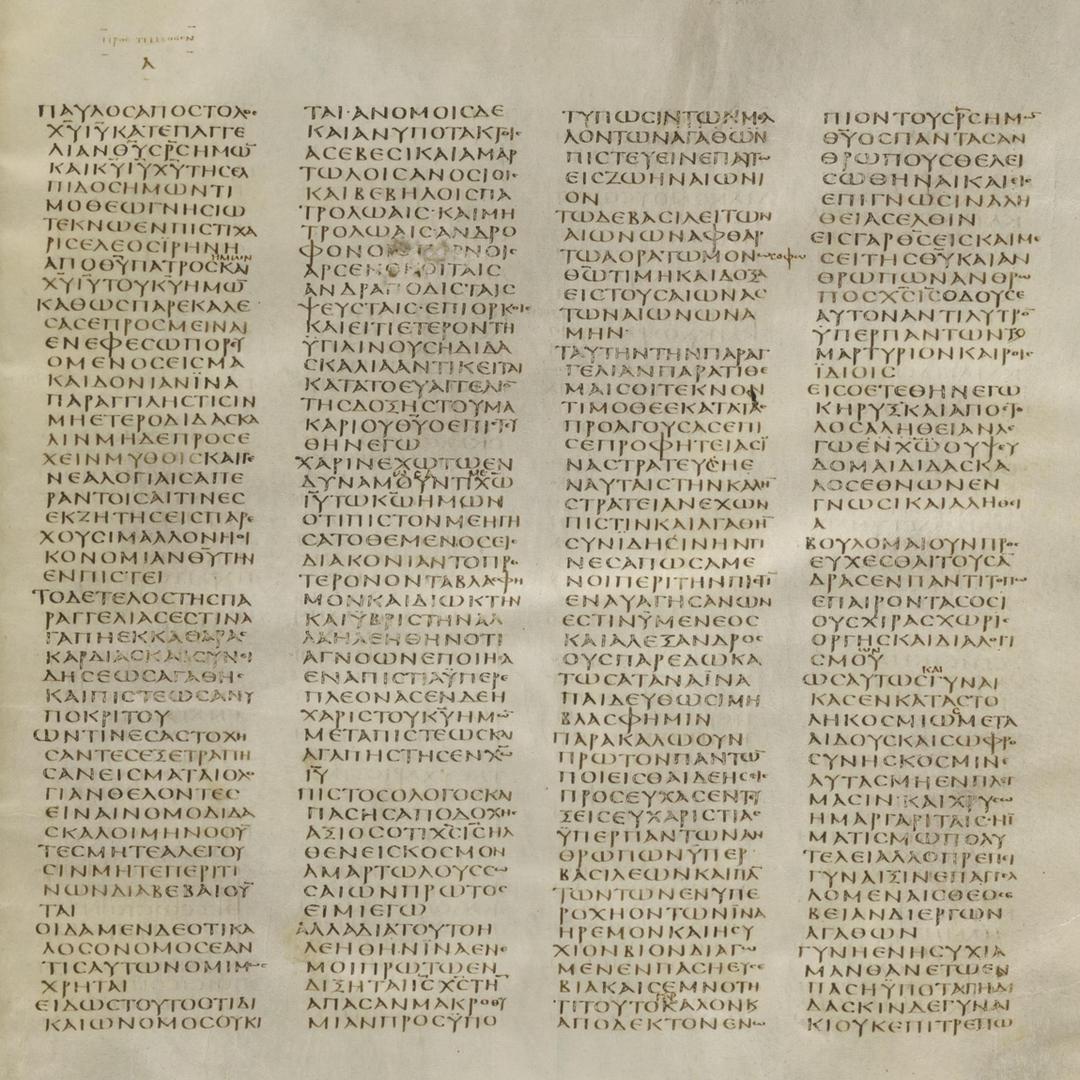 ΠΡΟΣ ΤΙΜΟΘΕΟΝ
Α
ΠΑΥΛΟϹΑΠΟϹΤΟΛΟϹ
ΧΥΙΥΚΑΤΕΠΑΓΓΕ
ΛΙΑΝΘΥϹΡϹΗΜΩ
ΚΑΙΚΥΙΥΧΥΤΗϹΕΛ
ΠΙΔΟϹΗΜΩΝΤΙ
ΜΟΘΕΩΓΝΗϹΙΩ
ΤΕΚΝΩΕΝΠΙϹΤΙΧΑ
ΡΙϹΕΛΕΟϹΪΡΗΝΗ
ΑΠΟΘΥΠΑΤΡΟϹΚΑΙ
ΧΥΙΥΤΟΥΚΥΗΜΩ
ΚΑΘΩϹΠΑΡΕΚΑΛΕ
ϹΑϹΕΠΡΟϹΜΕΙΝΑΙ
ΕΝΕΦΕϹΩΠΟΡΕΥ
ΟΜΕΝΟϹΕΙϹΜΑ
ΚΑΙΔΟΝΙΑΝΪΝΑ
ΠΑΡΑΓΓΙΛΗϹΤΙϹΙΝ
ΜΗΕΤΕΡΟΔΙΔΑϹΚΑ
ΛΙΝΜΗΔΕΠΡΟϹΕ
ΧΕΙΝΜΥΘΟΙϹΚΑΙΓΕ
ΝΕΑΛΟΓΙΑΙϹΑΠΕ
ΡΑΝΤΟΙϹΑΙΤΙΝΕϹ
ΕΚΖΗΤΗϹΕΙϹΠΑΡΕ
ΧΟΥϹΙΜΑΛΛΟΝΗΟΙ
ΚΟΝΟΜΙΑΝΘΥΤΗΝ
ΕΝΠΙϹΤΕΙ
ΤΟΔΕΤΕΛΟϹΤΗϹΠΑ
ΡΑΓΓΕΛΙΑϹΕϹΤΙΝΑ
ΓΑΠΗΕΚΚΑΘΑΡΑϹ
ΚΑΡΔΙΑϹΚΑΙϹΥΝΙ
ΔΗϹΕΩϹΑΓΑΘΗϹ
ΚΑΙΠΙϹΤΕΩϹΑΝΥ
ΠΟΚΡΙΤΟΥ
ΩΝΤΙΝΕϹΑϹΤΟΧΗ
ϹΑΝΤΕϹΕΞΕΤΡΑΠΗ
ϹΑΝΕΙϹΜΑΤΑΙΟΛΟ
ΓΙΑΝΘΕΛΟΝΤΕϹ
ΕΙΝΑΙΝΟΜΟΔΙΔΑ
ϹΚΑΛΟΙΜΗΝΟΟΥ
ΤΕϹΜΗΤΕΑΛΕΓΟΥ
ϹΙΝΜΗΤΕΠΕΡΙΤΙ
ΝΩΝΔΙΑΒΕΒΑΙΟΥ
ΤΑΙ
ΟΙΔΑΜΕΝΔΕΟΤΙΚΑ
ΛΟϹΟΝΟΜΟϹΕΑΝ
ΤΙϹΑΥΤΩΝΟΜΙΜΩϹ
ΧΡΗΤΑΙ
ΕΙΔΩϹΤΟΥΤΟΟΤΙΔΙ
ΚΑΙΩΝΟΜΟϹΟΥΚΙ
ΤΑΙ·ΑΝΟΜΟΙϹΔΕ
ΚΑΙΑΝΥΠΟΤΑΚΤΟΙϹ
ΑϹΕΒΕϹΙΚΑΙΑΜΑΡ
ΤΩΛΟΙϹΑΝΟϹΙΟΙϹ
ΚΑΙΒΕΒΗΛΟΙϹΠΑ
ΤΡΟΛΩΑΙϹ·ΚΑΙΜΗ
ΤΡΟΛΩΑΙϹΑΝΔΡΟ
ΦΟΝΟΙϹΠΟΡΝΟΙϹ
ΑΡϹΕΝΟΚΟΙΤΑΙϹ
ΑΝΔΡΑΠΟΔΙϹΤΑΙϹ
ΨΕΥϹΤΑΙϹ·ΕΠΙΟΡΚΟΙϹ
ΚΑΙΕΙΤΙΕΤΕΡΟΝΤΗ
ΥΓΙΑΙΝΟΥϹΗΔΙΔΑ
ϹΚΑΛΙΑΑΝΤΙΚΕΙΤΑΙ
ΚΑΤΑΤΟΕΥΑΓΓΕΛΙΟ
ΤΗϹΔΟΞΗϹΤΟΥΜΑ
ΚΑΡΙΟΥΘΥΟΕΠΙϹΤΕΥ
ΘΗΝΕΓΩ
ΧΑΡΙΝΕΧΩΤΩΕΝ
ΔΥΝΑΜΟΥΝΤΙΧΩ
ΙΥΤΩΚΩΗΜΩΝ
ΟΤΙΠΙϹΤΟΝΜΕΗΓΗ
ϹΑΤΟΘΕΜΕΝΟϹΕΙϹ
ΔΙΑΚΟΝΙΑΝΤΟΠΡΟ
ΤΕΡΟΝΟΝΤΑΒΛΑϹΦΗ
ΜΟΝΚΑΙΔΙΩΚΤΗΝ
ΚΑΙΥΒΡΙϹΤΗΝΑΛ
ΛΑΗΛΕΗΘΗΝΟΤΙ
ΑΓΝΟΩΝΕΠΟΙΗϹΑ
ΕΝΑΠΙϹΤΙΑΫΠΕΡΕ
ΠΛΕΟΝΑϹΕΝΔΕΗ
ΧΑΡΙϹΤΟΥΚΥΗΜΩ
ΜΕΤΑΠΙϹΤΕΩϹΚΑΙ
ΑΓΑΠΗϹΤΗϹΕΝΧΩ
ΙΥ
ΠΙϹΤΟϹΟΛΟΓΟϹΚΑΙ
ΠΑϹΗϹΑΠΟΔΟΧΗϹ
ΑΞΙΟϹΟΤΙΧϹΙϹΗΛ
ΘΕΝΕΙϹΚΟϹΜΟΝ
ΑΜΑΡΤΩΛΟΥϹϹΩ
ϹΑΙΩΝΠΡΩΤΟϹ
ΕΙΜΙΕΓΩ
ΑΛΛΑΔΙΑΤΟΥΤΟΗ
ΛΕΗΘΗΝΪΝΑΕΝΕ
ΜΟΙΠΡΩΤΩΕΝ
ΔΙΞΗΤΑΙΙϹΧϹΤΗ
ΑΠΑϹΑΝΜΑΚΡΟΘΥ
ΜΙΑΝΠΡΟϹΫΠΟ
ΤΥΠΩϹΙΝΤΩΝΜΕΛ
ΛΟΝΤΩΝΑΓΑΘΩΝ
ΠΙϹΤΕΥΕΙΝΕΠΑΥΤΩ
ΕΙϹΖΩΗΝΑΙΩΝΙ
ΟΝ
ΤΩΔΕΒΑϹΙΛΕΙΤΩΝ
ΑΙΩΝΩΝΑΦΘΑΡ
ΤΩΑΟΡΑΤΩΜΟΝΩϹΟΦΩ
ΘΩΤΙΜΗΚΑΙΔΟΞΑ
ΕΙϹΤΟΥϹΑΙΩΝΑϹ
ΤΩΝΑΙΩΝΩΝΑ
ΜΗΝ·
ΤΑΥΤΗΝΤΗΝΠΑΡΑΓ
ΓΕΛΙΑΝΠΑΡΑΤΙΘΕ
ΜΑΙϹΟΙΤΕΚΝΟΝ
ΤΙΜΟΘΕΕΚΑΤΑΤΑϹ
ΠΡΟΑΓΟΥϹΑϹΕΠΙ
ϹΕΠΡΟΦΗΤΕΙΑϹΪ
ΝΑϹΤΡΑΤΕΥϹΗΕ
ΝΑΥΤΑΙϹΤΗΝΚΑΛΗ
ϹΤΡΑΤΕΙΑΝΕΧΩΝ
ΠΙϹΤΙΝΚΑΙΑΓΑΘΗ
ϹΥΝΙΔΗϹΙΝΗΝΤΙ
ΝΕϹΑΠΩϹΑΜΕ
ΝΟΙΠΕΡΙΤΗΝΠΙϹΤΙ
ΕΝΑΥΑΓΗϹΑΝΩΝ
ΕϹΤΙΝΥΜΕΝΕΟϹ
ΚΑΙΑΛΕΞΑΝΔΡΟϹ
ΟΥϹΠΑΡΕΔΩΚΑ
ΤΩϹΑΤΑΝΑΪΝΑ
ΠΑΙΔΕΥΘΩϹΙΜΗ
ΒΛΑϹΦΗΜΙΝ
ΠΑΡΑΚΑΛΩΟΥΝ
ΠΡΩΤΟΝΠΑΝΤΩ
ΠΟΙΕΙϹΘΑΙΔΕΗϹΕΙϹ
ΠΡΟϹΕΥΧΑϹΕΝΤΕΥ
ΞΕΙϹΕΥΧΑΡΙϹΤΙΑϹ
ΫΠΕΡΠΑΝΤΩΝΑΝ
ΘΡΩΠΩΝΫΠΕΡ
ΒΑϹΙΛΕΩΝΚΑΙΠΑ
ΤΩΝΤΩΝΕΝΥΠΕ
ΡΟΧΗΟΝΤΩΝΪΝΑ
ΗΡΕΜΟΝΚΑΙΗϹΥ
ΧΙΟΝΒΙΟΝΔΙΑΓΩ
ΜΕΝΕΝΠΑϹΗΕΥϹΕ
ΒΙΑΚΑΙϹΕΜΝΟΤΗ
ΤΙΤΟΥΤΟΚΑΛΟΝΚ
ΑΠΟΔΕΚΤΟΝΕΝΩ
ΠΙΟΝΤΟΥϹΡϹΗΜΩ
ΘΥΟϹΠΑΝΤΑϹΑΝ
ΘΡΩΠΟΥϹΘΕΛΕΙ
ϹΩΘΗΝΑΙΚΑΙΕΙϹ
ΕΠΙΓΝΩϹΙΝΑΛΗ
ΘΕΙΑϹΕΛΘΙΝ
ΕΙϹΓΑΡΘϹΕΙϹΚΑΙΜΕ
ϹΕΙΤΗϹΘΥΚΑΙΑΝ
ΘΡΩΠΩΝΑΝΘΡΩ
ΠΟϹΧϹΙϹΟΔΟΥϹΕ
ΑΥΤΟΝΑΝΤΙΛΥΤΡΟ
ΫΠΕΡΠΑΝΤΩΝΤΟ
ΜΑΡΤΥΡΙΟΝΚΑΙΡΟΙϹ
ΪΔΙΟΙϹ
ΕΙϹΟΕΤΕΘΗΝΕΓΩ
ΚΗΡΥΞΚΑΙΑΠΟϹΤΟ
ΛΟϹΑΛΗΘΕΙΑΝΛΕ
ΓΩΕΝΧΩΟΥΨΕΥ
ΔΟΜΑΙΔΙΔΑϹΚΑ
ΛΟϹΕΘΝΩΝΕΝ
ΓΝΩϹΙΚΑΙΑΛΗΘΕΙ
Α
ΒΟΥΛΟΜΑΙΟΥΝΠΡΟϹ
ΕΥΧΕϹΘΑΙΤΟΥϹΑ
ΔΡΑϹΕΝΠΑΝΤΙΤΟΠΩ
ΕΠΑΙΡΟΝΤΑϹΟϹΙ
ΟΥϹΧΙΡΑϹΧΩΡΙϹ
ΟΡΓΗϹΚΑΙΔΙΑΛΟΓΙ
ϹΜΟΥ
ΩϹΑΥΤΩϹΓΥΝΑΙ
ΚΑϹΕΝΚΑΤΑϹΤΟ
ΛΗΚΟϹΜΙΩΜΕΤΑ
ΑΙΔΟΥϹΚΑΙϹΩΦΡΟ
ϹΥΝΗϹΚΟϹΜΙΝΕ
ΑΥΤΑϹΜΗΕΝΠΛΕΓ
ΜΑϹΙΝΚΑΙΧΡΥϹΙΩ
ΗΜΑΡΓΑΡΙΤΑΙϹ·ΗΪ
ΜΑΤΙϹΜΩΠΟΛΥ
ΤΕΛΕΙΑΛΛΟΠΡΕΠΕΙ
ΓΥΝΑΙΞΙΝΕΠΑΓΓΕ
ΛΟΜΕΝΑΙϹΘΕΟϹΕ
ΒΕΙΑΝΔΙΕΡΓΩΝ
ΑΓΑΘΩΝ
ΓΥΝΗΕΝΗϹΥΧΙΑ
ΜΑΝΘΑΝΕΤΩΕΝ
ΠΑϹΗΫΠΟΤΑΓΗΔΙ
ΔΑϹΚΙΝΔΕΓΥΝΑΙ
ΚΙΟΥΚΕΠΙΤΡΕΠΩ